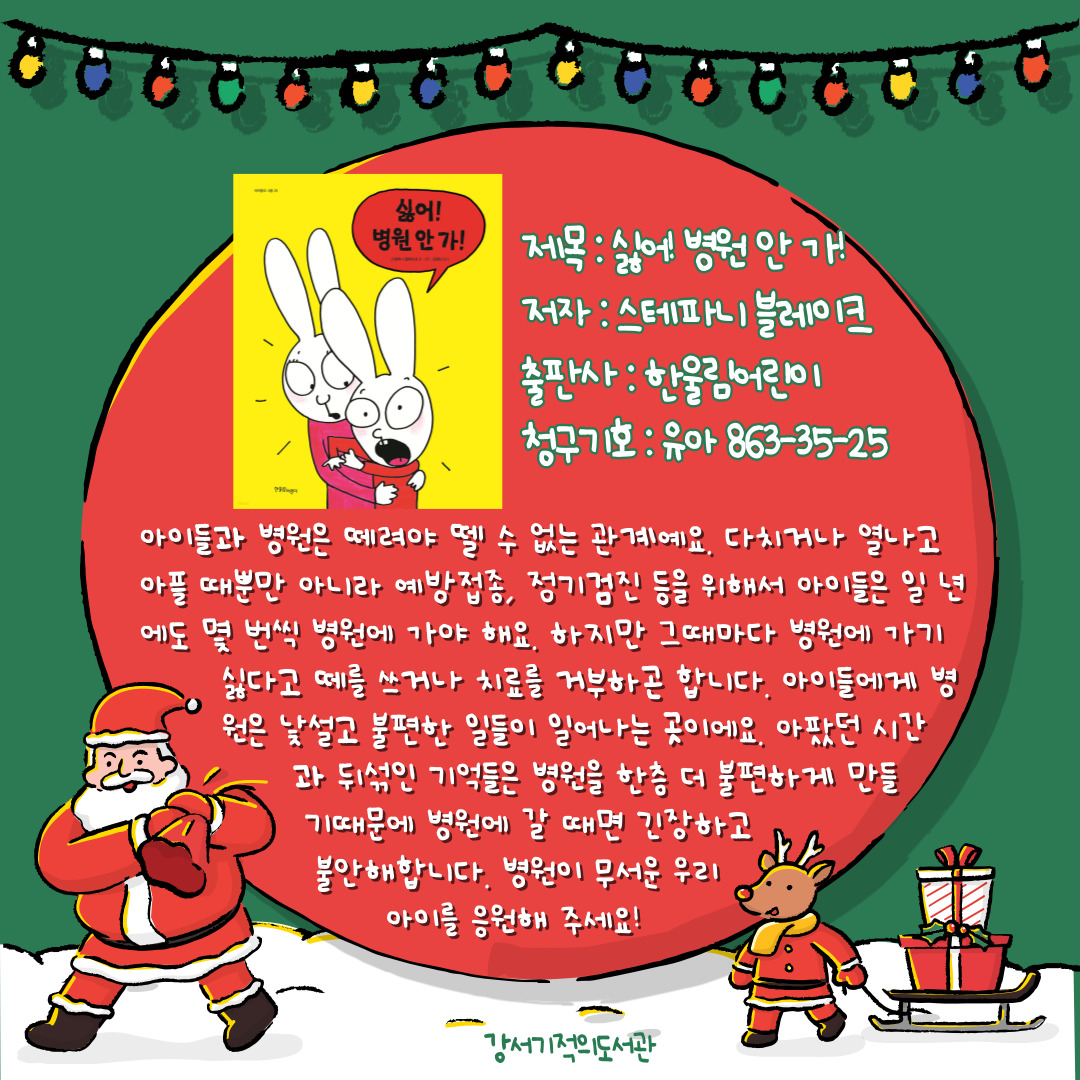 싫어!
병원 안 가!
제목 : 싫어! 병원 안 가!
저자 : 스테파니 블레이크
출판사 : 한울림어린이
청구기호 : 유아 863-35-25
한울림어린이
아이들과 병원은 떼려야 뗄 수 없는 관계예요. 다치거나 열나고
아플 때뿐만 아니라 예방접종, 정기검진 등을 위해서 아이들은 일 년
에도 몇 번씩 병원에 가야 해요. 하지만 그때마다 병원에 가기
싫다고 떼를 쓰거나 치료를 거부하곤 합니다. 아이들에게 병
원은 낯설고 불편한 일들이 일어나는 곳이에요. 아팠던 시간
과 뒤섞인 기억들은 병원을 한층 더 불편하게 만들
기때문에 병원에 갈 때면 긴장하고
불안해합니다. 병원이 무서운 우리
아이를 응원해 주세요!
강서기적의도서관